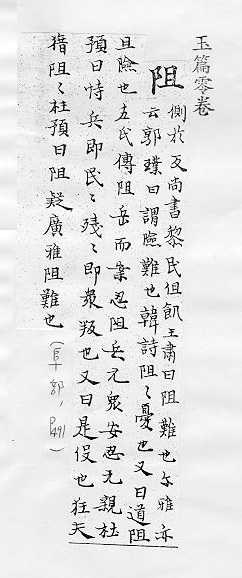 玉篇零卷
阻
側於反尚書黎民伹飢王肅曰阻難也尔雅亦
云郭璞曰謂險難也韓詩阻〻憂也又曰道阻
且險也左氏傳阻岳而案忍阻兵无衆安忍无親杜
預曰恃兵即民〻殘〻即衆叛也又曰是伇也狂夫
猪阻〻杜預曰阻疑廣雅阻難也(阜部, P491)